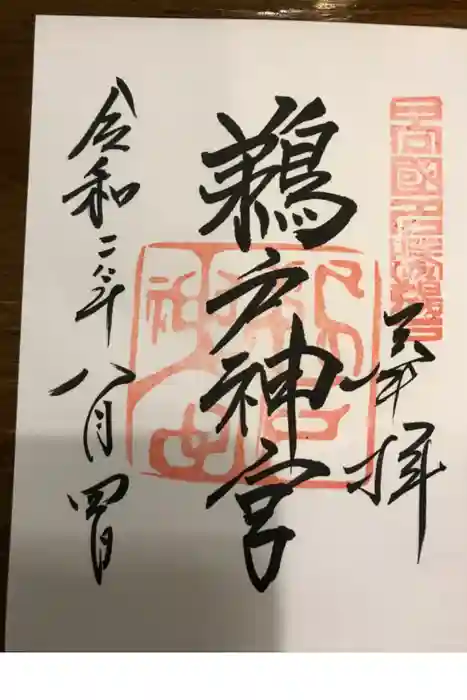 奉拝
鵜戸神宮
令和二年八月四日